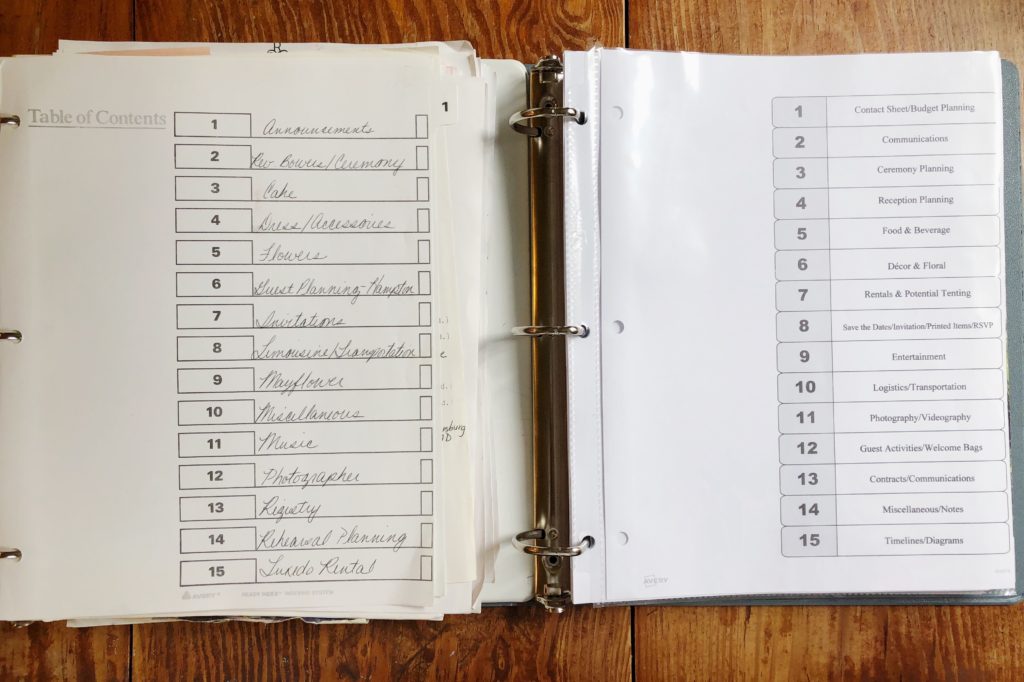 Table of Contents
1 Announcements
2 Rev Bowers/Ceremony
3 Cake
4 Dress/Accessories
5 Flowers
6 Guest Planning-Hampton
7 Invitations
8 Limousine/Transportation
9 Mayflower
10 Miscellaneous
11 Music
12 Photographer
13 Registry
14 Rehearsal Planning
15 Tuxedo Rental
AVERY READY INDEX INDEXING SYSTEM
1
e
d.)
1 Contact Sheet/Budget Planning
2 Communications
3 Ceremony Planning
4 Reception Planning
5 Food & Beverage
6 Décor & Floral
7 Rentals & Potential Tenting
8 Save the Dates/Invitation/Printed Items/RSVP
9 Entertainment
10 Logistics/Transportation
11 Photography/Videography
12 Guest Activities/Welcome Bags
13 Contracts/Communications
14 Miscellaneous/Notes
15 Timelines/Diagrams
AVERY